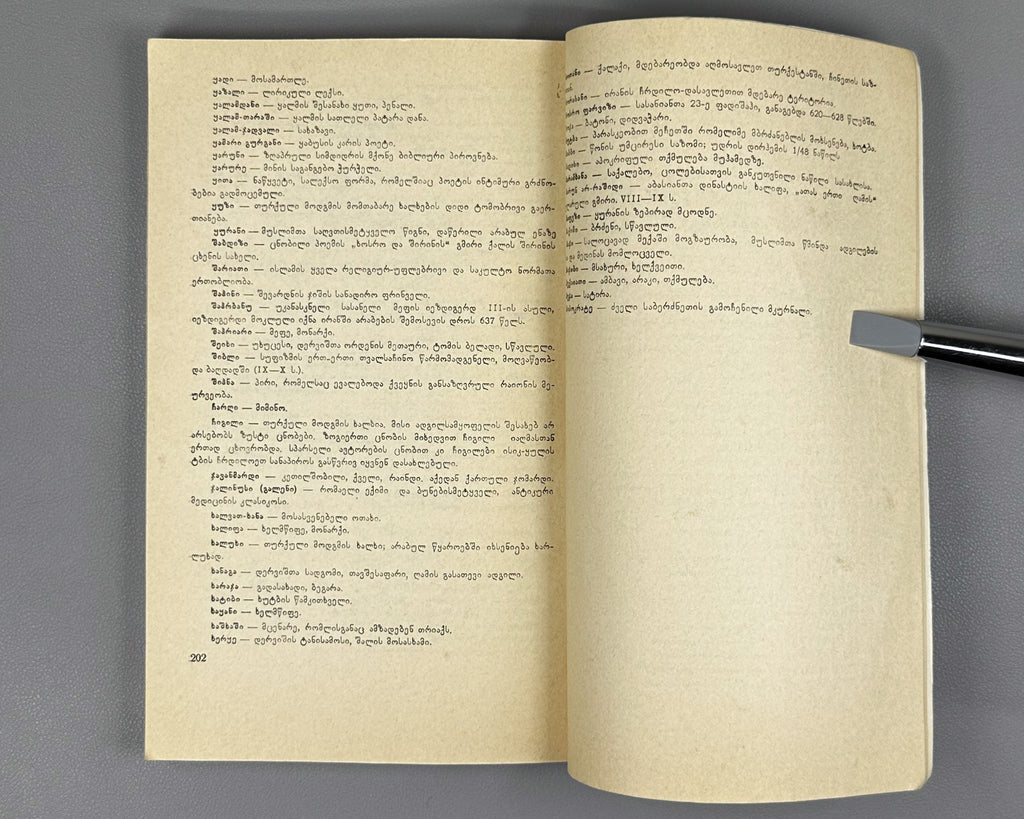 ყადი — მოსამართლე.
ყაზალი — ლირიკული ლექსი.
ყალამდანი — ყალმის შესანახი ყუთი, პენალი.
ყალამ-თარაში — ყალმის სათლელი პატარა დანა.
ყალამ-ჯადვალი — სახაზავი.
ყამარი გურგანი — ყაბუსის კარის პოეტი.
ყარუნი — ზღაპრული სიმდიდრის მქონე ბიბლიური პიროვნება.
ყარურე — მინის საგანგებო ჭურჭელი.
ყითა — ნაწყვეტი, სალექსო ფორმა, რომელშიაც პოეტის ინტიმური გრძნო-
ბებია გადმოცემული.
ყუზი — თურქული მოდგმის მომთაბარე ხალხების დიდი ტომობრივი გაერ-
თიანება.
ყურანი — მუსლიმთა საღვთისმეტყველო წიგნი, დაწერილი არაბულ ენაზე
შაბდიზი — ცნობილი პოემის „ხოსრო და შირინის" გმირი ქალის შირინის
ცხენის სახელი.
შარიათი — ისლამის ყველა რელიგიურ-უფლებრივი და საკულტო ნორმათა
ერთობლიობა.
შაჰინი — შევარდნის ჯიშის სანადირო ფრინველი.
შაჰრბანუ — უკანასკნელი სასანელი მეფის იეზდიგერდ III-ის ასული,
იეზდიგერდი მოკლული იქნა ირანში არაბების შემოსევის დროს 637 წელს.
შაჰრიარი — მეფე, მონარქი.
შეიხი — უხუცესი, დერვიშთა ორდენის მეთაური, ტომის ბელადი, სწავლული.
შიბლი — სუფიზმის ერთ-ერთი თვალსაჩინო წარმომადგენელი, მოღვაწეობ-
და ბაღდადში (IX—X ს.).
შიჰნა — პირი, რომელსაც ევალებოდა ქვეყნის განსაზღვრული რაიონის მე-
ურვეობა.
ჩარღი — მიმინო.
ჩიგილი — თურქული მოდგმის ხალხია, მისი ადგილსამყოფელის შესახებ არ
არსებობს ზუსტი ცნობები, ზოგიერთი ცნობის მიხედვით ჩიგილი იაღმასთან
ერთად ცხოვრობდა, სპარსელი ავტორების ცნობით კი ჩიგილები ისიკ-ყულის
ტბის ჩრდილოეთ სანაპიროს გასწვრივ იყვნენ დასახლებული.
ჯავანმარდი — კეთილშობილი, ქველი, რაინდი, აქედან ქართული ჯომარდი.
ჯალინუსი (გალენი) — რომაელი ექიმი და ბუნებისმეტყველი, ანტიკური
მედიცინის კლასიკოსი.
ხალვათ-ხანა — მოსასვენებელი ოთახი.
ხალიფა — ხელმწიფე, მონარქი.
ხალუხი — თურქული მოდგმის ხალხი; არაბულ წყაროებში იხსენიება ხარ-
ლუხად.
ხანაგა — დერვიშთა სადგომი, თავშესაფარი, ღამის გასათევი ადგილი.
ხარაჯა — გადასახადი, ბეგარა.
ხატიბი — ხუტბის წამკითხველი.
ხაყანი — ხელმწიფე.
ხაშხაში — მცენარე, რომლისგანაც ამზადებენ თრიაქს.
ხერყე — დერვიშის ტანისამოსი, შალის მოსასხამი.
202
— ქალაქი, მდებარეობდა აღმოსავლეთ თურქესტანში, ჩინეთის საზ-
— ირანის ჩრდილო-დასავლეთით მდებარე ტერიტორია.
ფარვიზი — სასანიანთა 23-ე ფადიშაჰი, განაგებდა 620—628 წლებში.
— ბატონი, დიდვაჭარი.
— პარასკეობით მეჩეთში რომელიმე მბრძანებლის მოხსენება, ხოტბა.
— წონის უმცირესი საზომი; უდრის დირჰემის 1/48 ნაწილს.
— აპოკრიფული თქმულება მუჰამედზე.
— საქალებო, ცოლებისათვის განკუთვნილი ნაწილი სასახლისა.
არ-რაშიდი — აბასიანთა დინასტიის ხალიფა, „ათას ერთი ღამის"
გმირი, VIII—IX ს.
— ყურანის ზეპირად მცოდნე.
— ბრძენი, სწავლული.
— სალოცავად მექაში მოგზაურობა, მუსლიმთა წმინდა ადგილების
და მედინას მომლოცველი.
— მსახური, ხელქვეითი.
— ამბავი, არაკი, თქმულება.
— სატირა.
— ძველი საბერძნეთის გამოჩენილი მკურნალი.